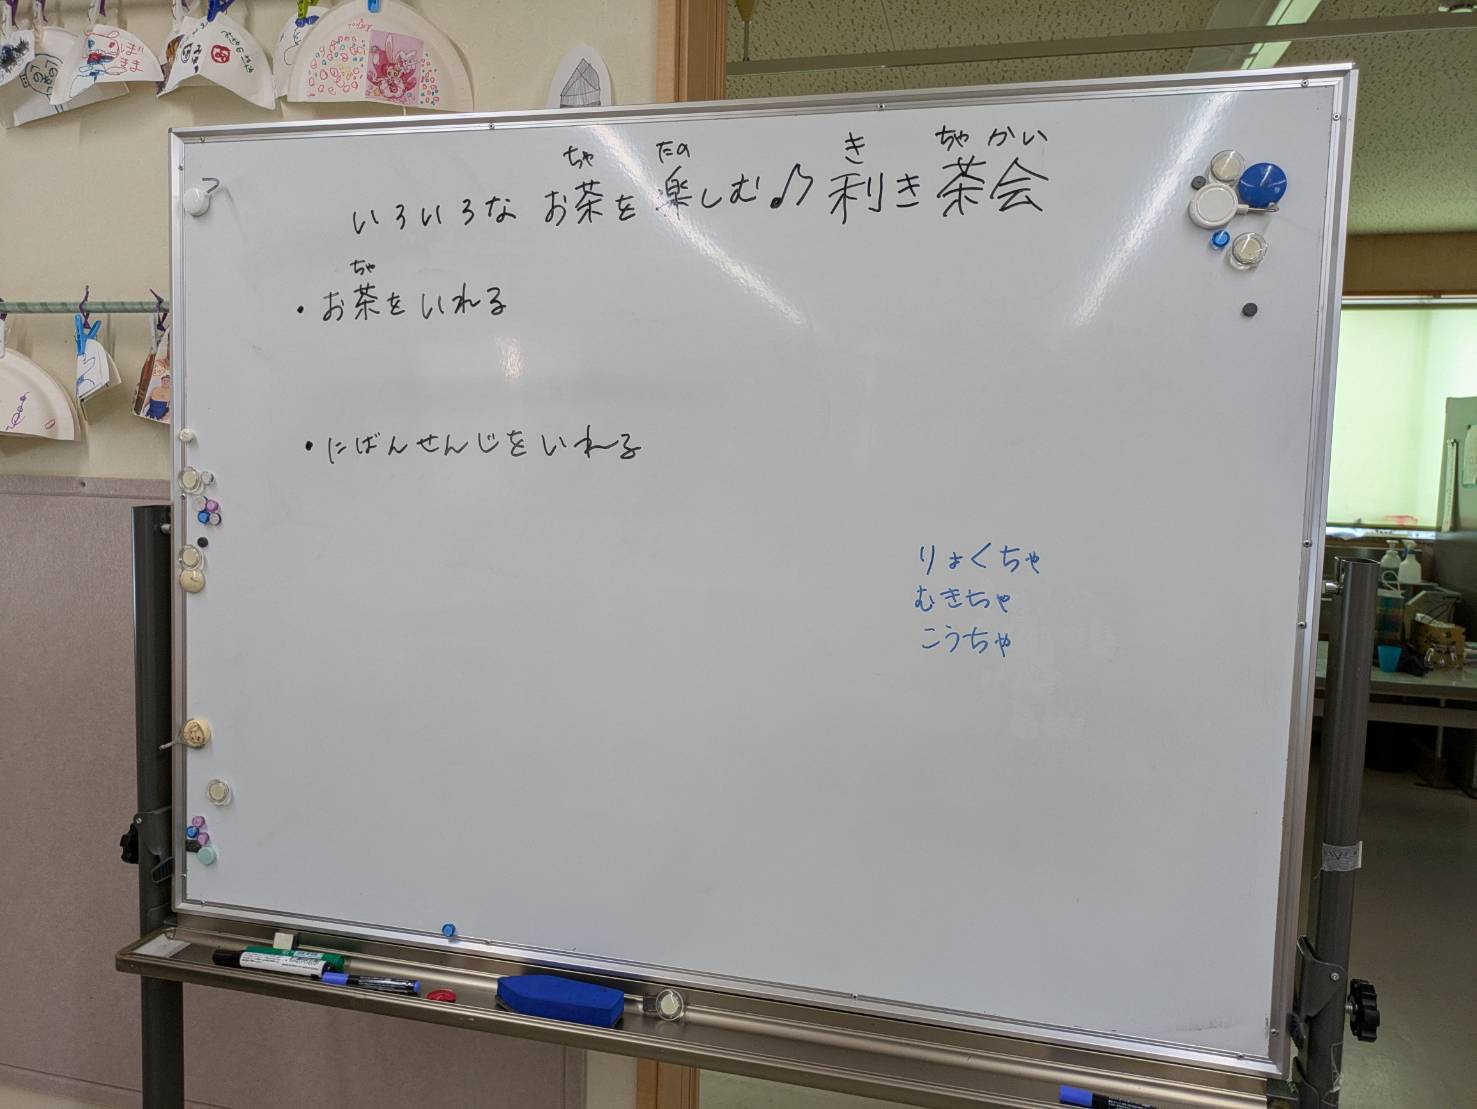 いろいろな お茶を楽しむ♪ 利き茶会
ちゃ たの き ちゃ かい
・お茶をいれる
ちゃ
・にばんせんじをいれる
りょくちゃ
むきちゃ
こうちゃ